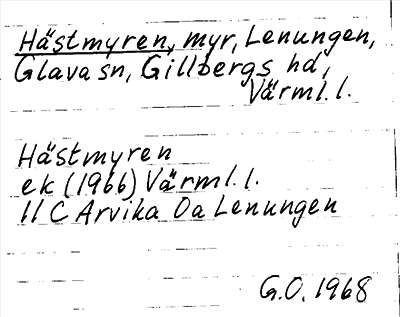 Hästmyren, myr, Lenungen,
Glava sn, Gillbergs hd,
Värml. l.
Hästmyren
ek (1966) Värml. l.
11 C Arvika 0a Lenungen
G.O. 1968